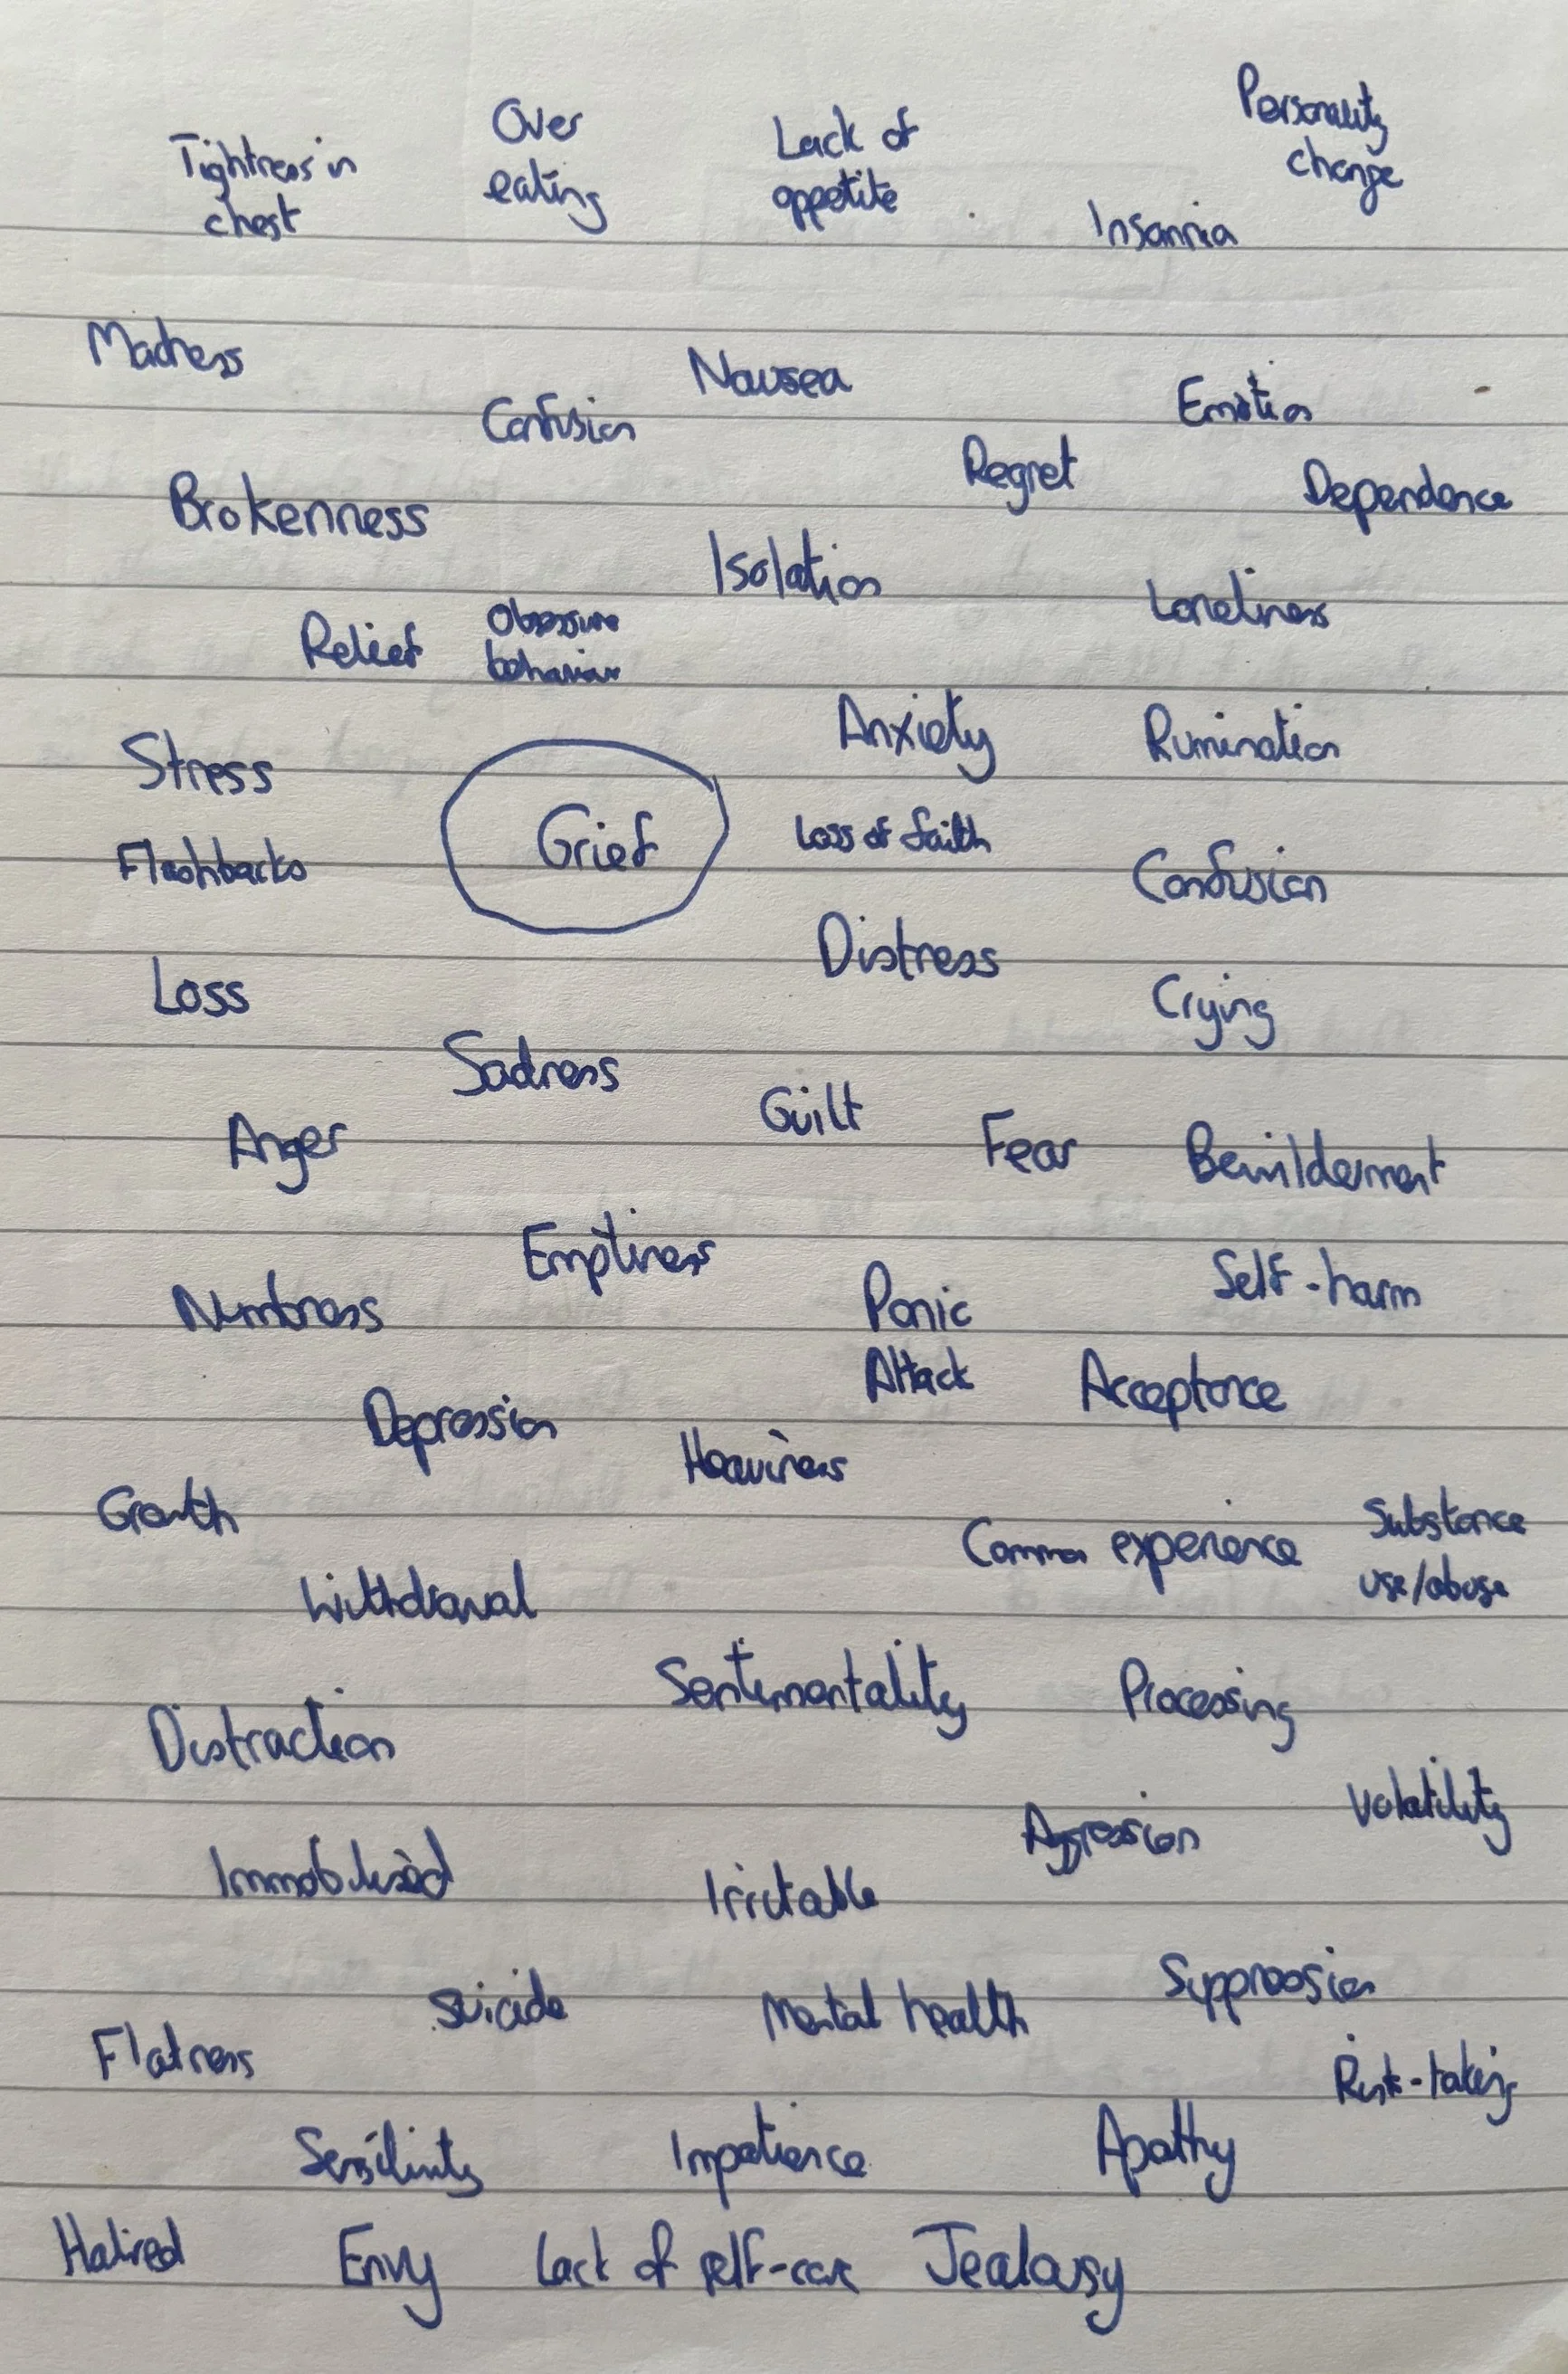 Personality
change
Over
eating
Lack of
appetite
Tightness in
chest
Insomnia
Madness
Nausea
Emotion
Confusion
Regret
Dependence
Brokenness
Isolation
Loneliness
Relief
Obsessive
behaviour
Anxiety
Rumination
Stress
Grief
Loss of faith
Flashbacks
Confusion
Distress
Loss
Crying
Sadness
Guilt
Anger
Fear
Bewilderment
Emptiness
Self-harm
Numbness
Panic
Attack
Acceptance
Depression
Heaviness
Growth
Common experience
Substance
use/abuse
Withdrawal
Sentimentality
Processing
Distraction
Volatility
Aggression
Immobilised
Irritable
Suicide
Mental health
Suppression
Flatness
Risk-taking
Sensitivity
Impatience
Apathy
Hatred
Envy
Lack of self-care
Jealousy